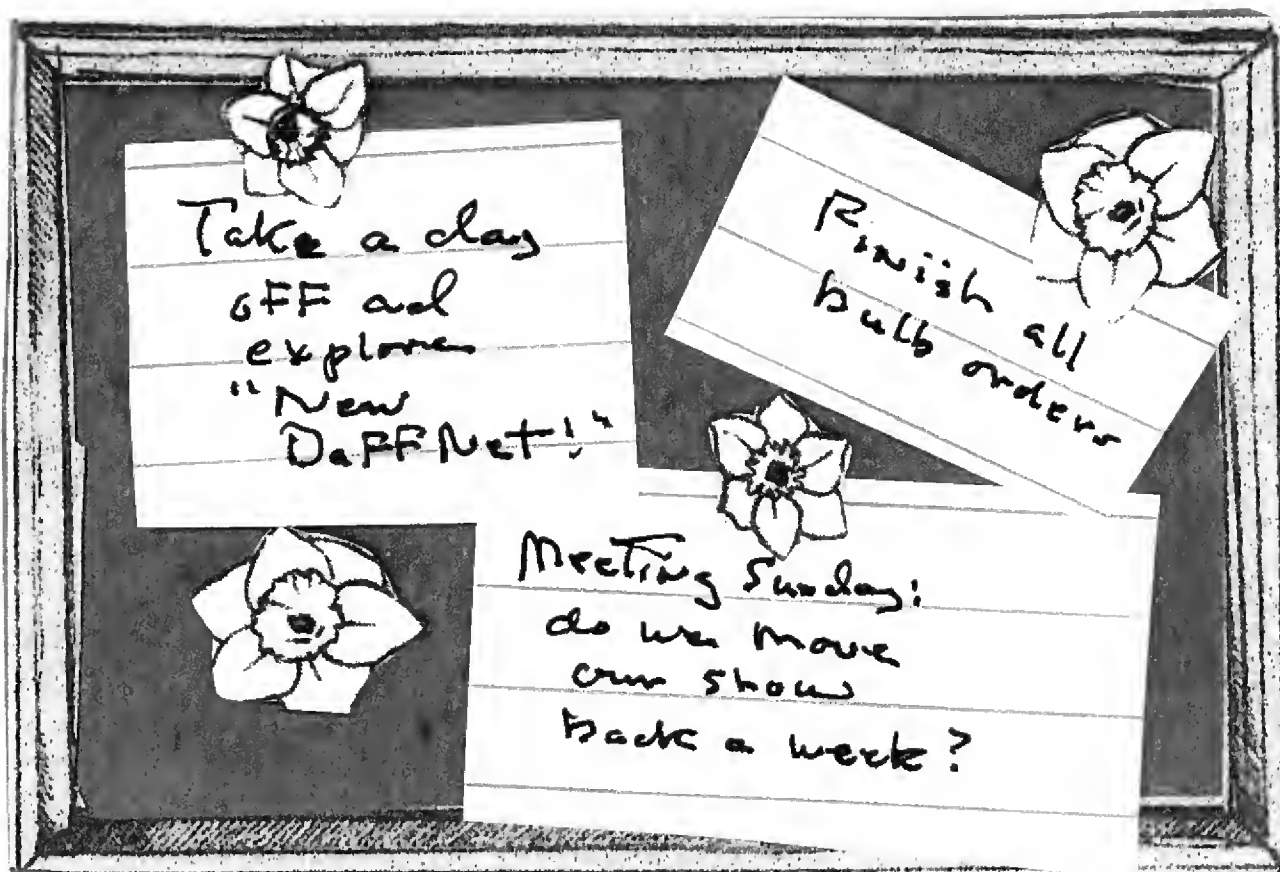 Take a day
off and
explore
"New
DaffNet!"
Finish all
bulb orders
Meeting Sunday:
do we move
our show
back a week?